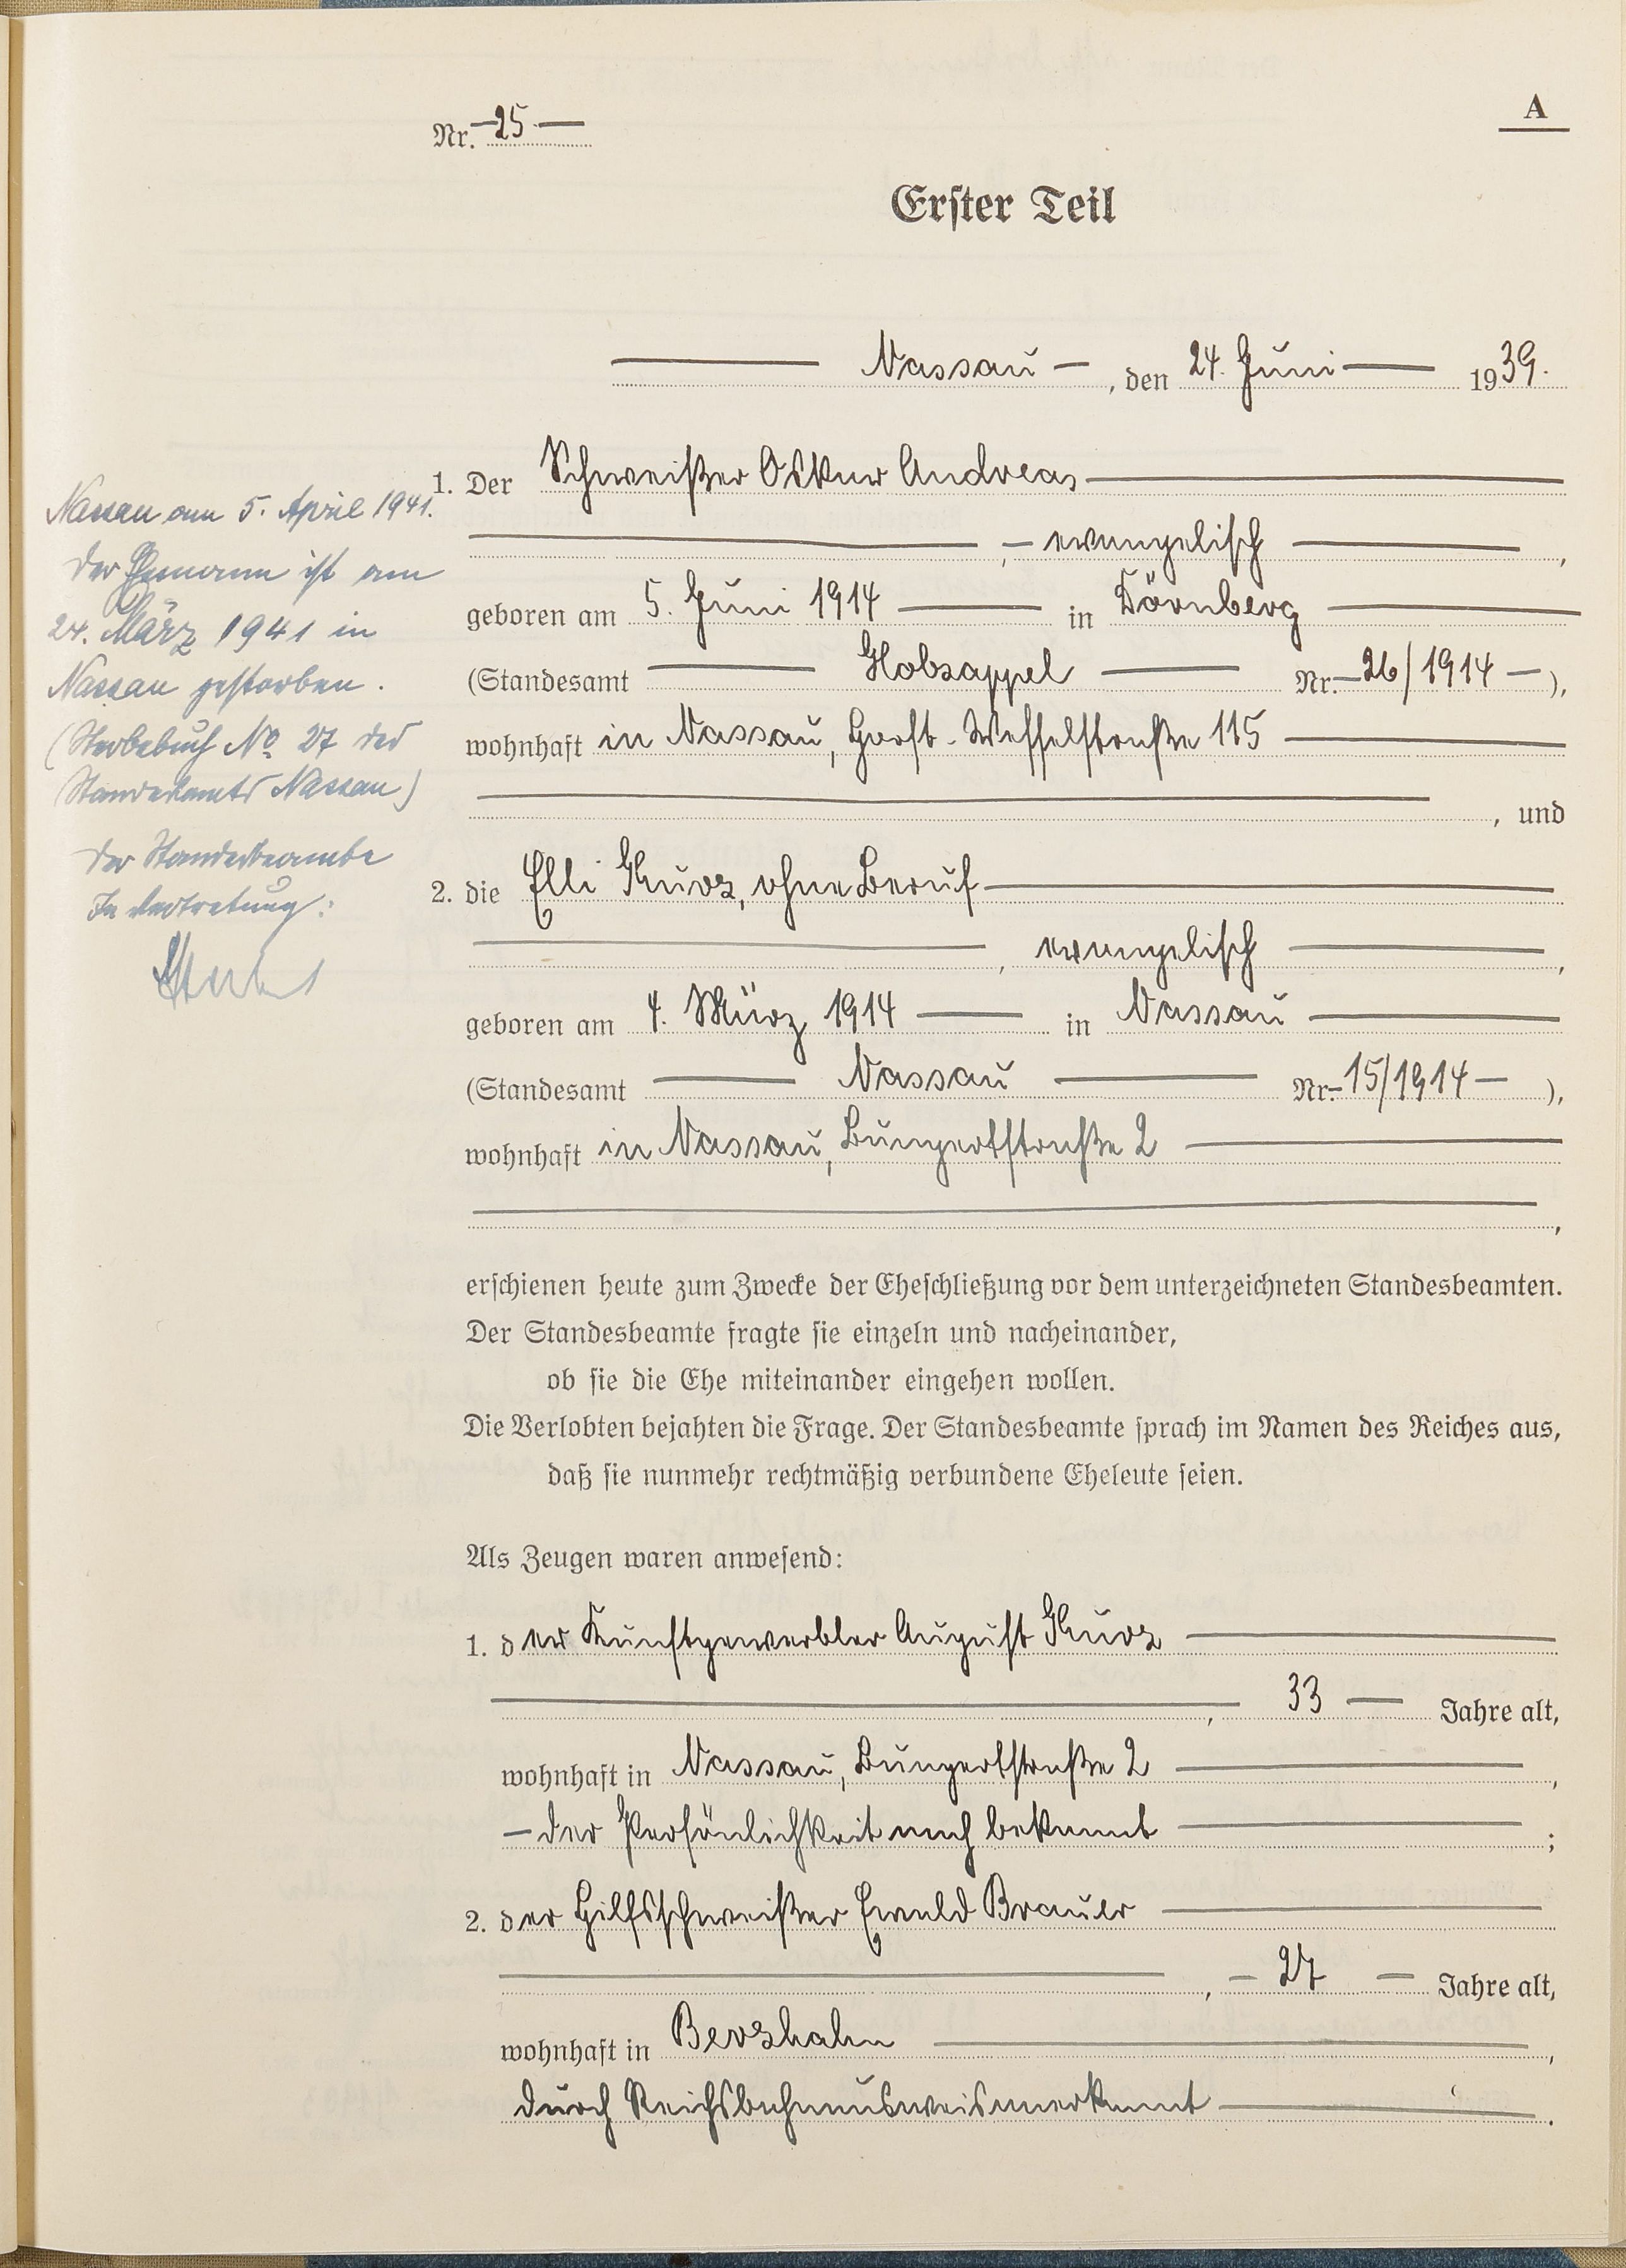 A
Nr. 25
Erster Teil
Nassau, den 24. Juni 1939.
1. Der Schweißer Oskar Andreas
, evangelisch,
geboren am 5. Juni 1914 in Dörnberg
(Standesamt Holzappel Nr. 26/1914),
wohnhaft in Nassau, Horst-Wesselstraße 115
, und
2. die Elli Kurz, ohne Beruf
, evangelisch,
geboren am 4. März 1914 in Nassau
(Standesamt Nassau Nr. 15/1914),
wohnhaft in Nassau, Bungertstraße 2
,
erschienen heute zum Zwecke der Eheschließung vor dem unterzeichneten Standesbeamten.
Der Standesbeamte fragte sie einzeln und nacheinander,
ob sie die Ehe miteinander eingehen wollen.
Die Verlobten bejahten die Frage. Der Standesbeamte sprach im Namen des Reiches aus,
daß sie nunmehr rechtmäßig verbundene Eheleute seien.
Als Zeugen waren anwesend:
1. der Kunstgewerbler August Kurz
, 33 Jahre alt,
wohnhaft in Nassau, Bungertstraße 2,
der Persönlichkeit nach bekannt;
2. der Hilfsschweißer Ewald Brauer
, 27 Jahre alt,
wohnhaft in Berzhahn,
durch Reichsbahnausweis anerkannt.
Nassau am 5. April 1941.
Der Ehemann ist am
24. März 1941 in
Nassau gestorben.
(Sterbebuch No 27 des
Standesamts Nassau)
Der Standesbeamte
In Vertretung: